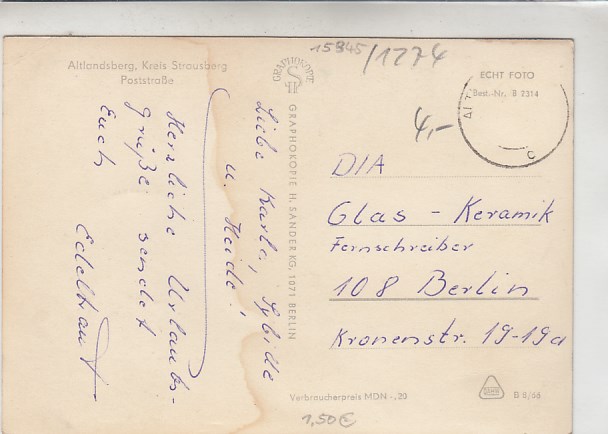 Altlandsberg, Kreis Strausberg
Poststraße
15845/1274
4,-
ECHT FOTO
Best.-Nr. B 2314
GRAPHOKOPIE
GRAPHOKOPIE H. SANDER KG, 1071 BERLIN
Liebe Karla, Sybille
u. Heide!
Herzliche Urlaubs-
grüße sendet
Euch
Edeltraut
DIA
Glas - Keramik
Fernschreiber
108 Berlin
Kronenstr. 19-19a
Verbraucherpreis MDN -,20
B 8/66
1,50€